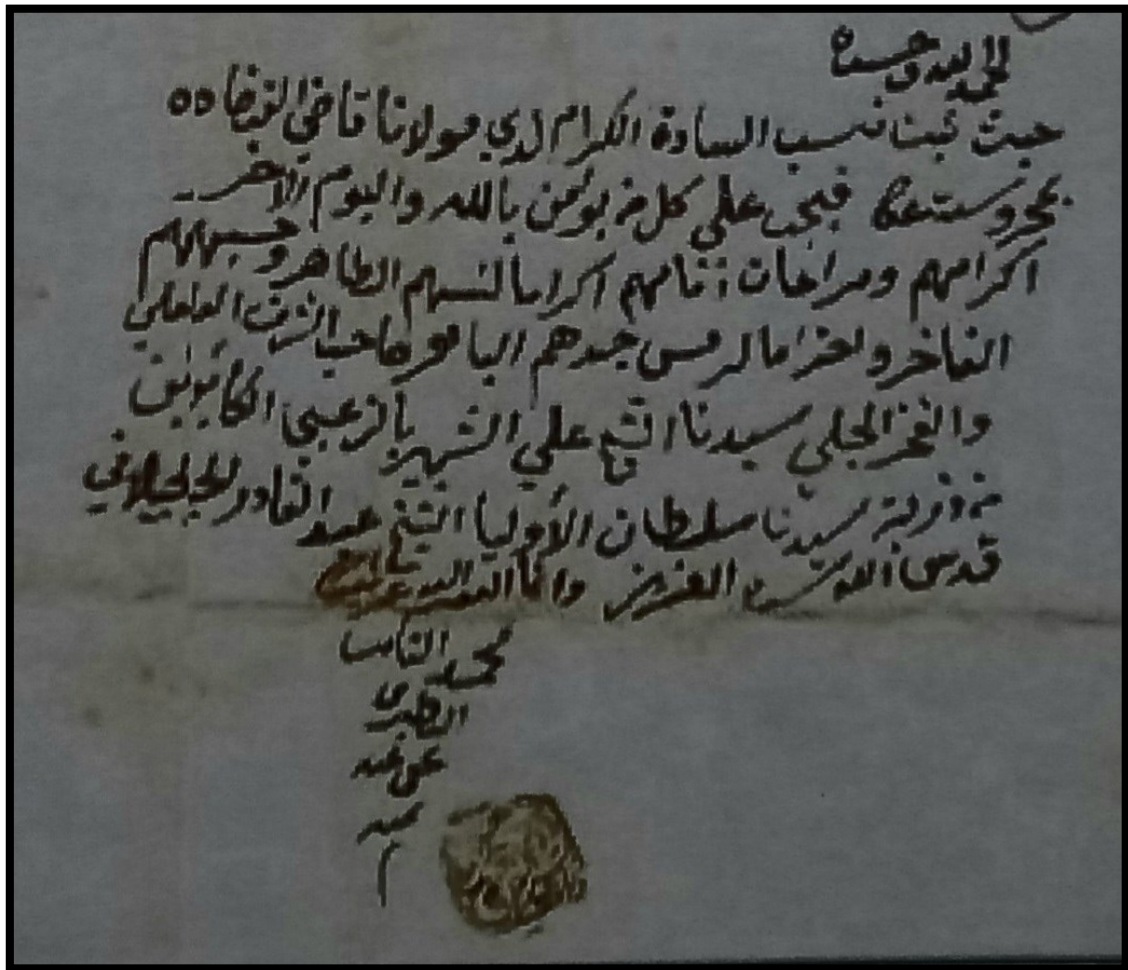 الحمد لله وحده
حيث ثبت نسب السادة الكرام لدي مولانا قاضي القضاه
بمحروسة عكا فيجب علي كل من يؤمن بالله واليوم الاخر
اكرامهم ومراعات اكراما لنسبهم الطاهر وحسبهم
الفاخر واحتراما لرمس جدهم صاحب الشرف
والفخر الجلي سيدنا الشيخ علي الشهير بازعبي
من ذرية سيدنا سلطان الأوليا الشيخ عبد القادر الجيلاني
قدس الله سره العزيز وانا
محمد
الطبري
عفي عنه